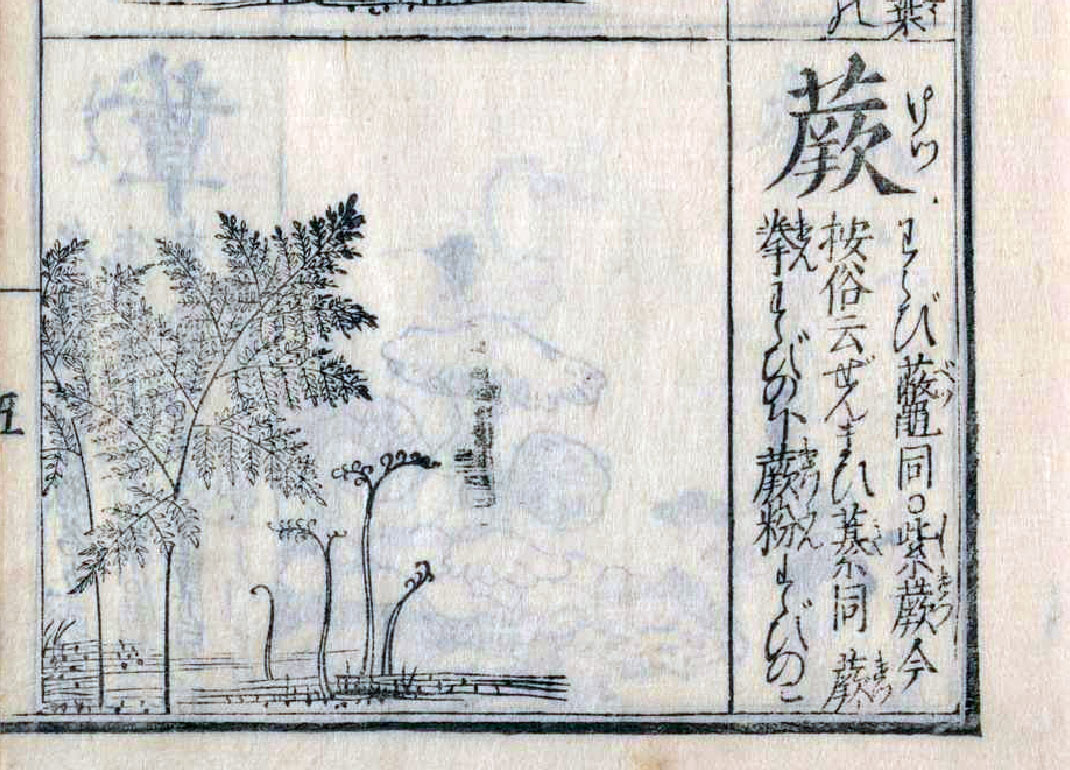 葉
の
蕨
けつ わらび 虌同○紫蕨今
按俗云ぜんまひ藄同 蕨
拳わらびのて 蕨粉わらびのこ